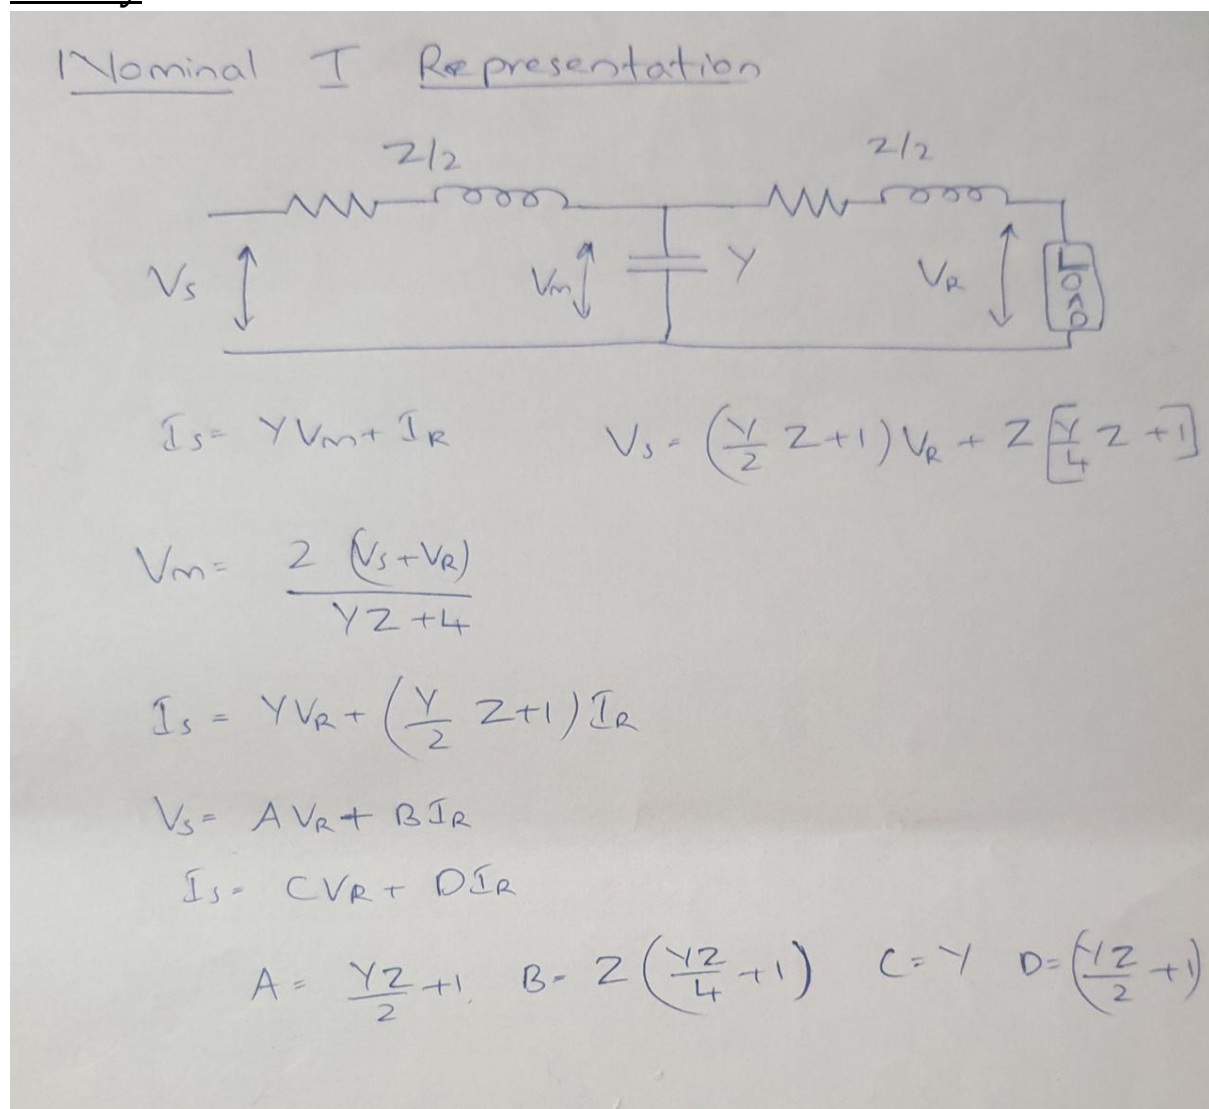 Nominal T Representation
Z/2 Z/2
Vs Vm Y VR LOAD
Is= YVm+ IR Vs= (Y/2 Z+1) VR + Z[Y/4 Z +1]
Vm= 2 (Vs+VR) / YZ+4
Is = YVR+ (Y/2 Z+1) IR
Vs= AVR+ BIR
Is= CVR+ DIR
A= YZ/2 +1, B= Z(YZ/4 +1) C=Y D=(YZ/2 +1)